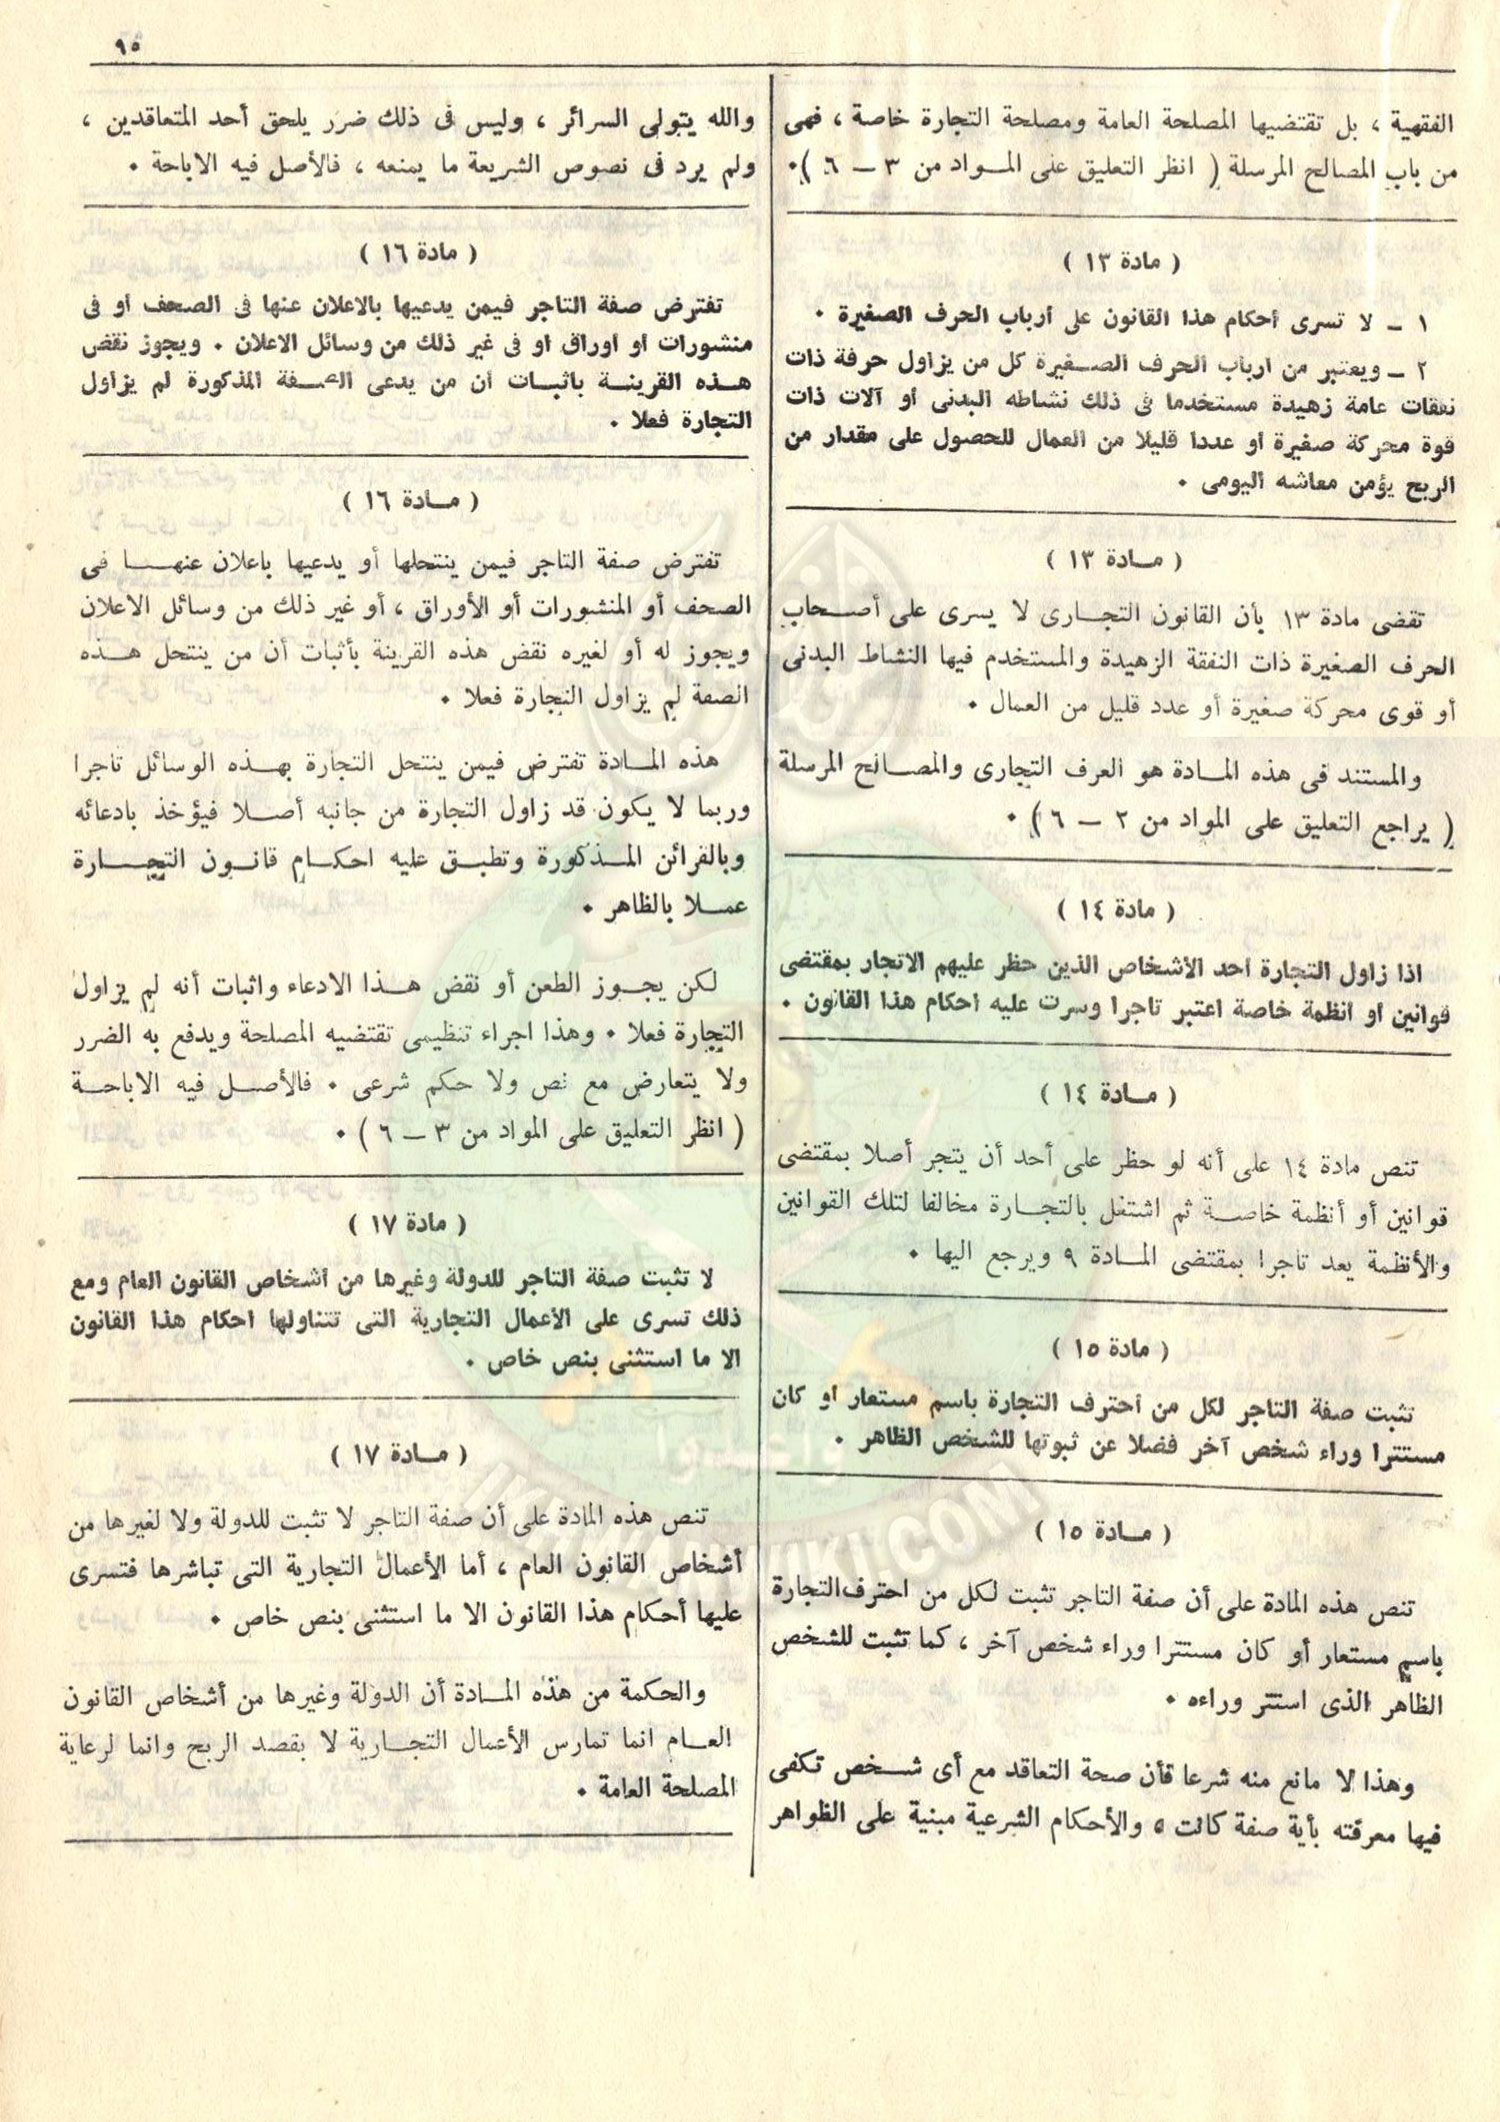 ٩٥
الفقهية ، بل تقتضيها المصلحة العامة ومصلحة التجارة خاصة ، فهى
من باب المصالح المرسلة ( انظر التعليق على المـواد من ٣ ــ ٦ )٠
( مادة ١٣ )
١ ــ لا تسرى أحكام هذا القانون على أرباب الحرف الصغيرة ٠
٢ ــ ويعتبر من ارباب الحرف الصـغيرة كل من يزاول حرفة ذات
نفقات عامة زهيدة مستخدما فى ذلك نشاطه البدنى أو آلات ذات
قوة محركة صغيرة أو عددا قليلا من العمال للحصول على مقدار من
الربح يؤمن معاشه اليومى ٠
( مـادة ١٣ )
تقضى مادة ١٣ بأن القانون التجـارى لا يسرى على أصـحاب
الحرف الصغيرة ذات النفقة الزهيدة والمستخدم فيها النشاط البدنى
أو قوى محركة صغيرة أو عدد قليل من العمال ٠
والمستند فى هذه المـادة هو العرف التجارى والمصـالح المرسلة
( يراجع التعليق على المواد من ٢ ــ ٦ ) ٠
( مادة ١٤ )
اذا زاول التجارة أحد الأشخاص الذين حظر عليهم الاتجار بمقتضى
قوانين او انظمة خاصة اعتبر تاجرا وسرت عليه احكام هذا القانون ٠
( مـادة ١٤ )
تنص مادة ١٤ على أنه لو حظر على أحد أن يتجر أصلا بمقتضى
قوانين أو أنظمة خاصـة ثم اشتغل بالتجـارة مخالفا لتلك القوانين
والأنظمة يعد تاجرا بمقتضى المـادة ٩ ويرجع اليها ٠
( مادة ١٥ )
تثبت صفة التاجر لكل من احترف التجارة باسم مستعار او كان
مستترا وراء شخص آخر فضلا عن ثبوتها للشخص الظاهر ٠
( مـادة ١٥ )
تنص هذه المادة على أن صفة التاجر تثبت لكل من احترف التجارة
باسم مستعار أو كان مستترا وراء شخص آخر ، كما تثبت للشخص
الظاهر الذى استتر وراءه ٠
وهذا لا مانع منه شرعا فأن صحة التعاقد مع أى شـخص تكفى
فيها معرفته بأية صفة كانت ٥ والأحكام الشرعية مبنية على الظواهر
والله يتولى السرائر ، وليس فى ذلك ضرر يلحق أحد المتعاقدين ،
ولم يرد فى نصوص الشريعة ما يمنعه ، فالأصل فيه الاباحة ٠
( مادة ١٦ )
تفترض صفة التاجر فيمن يدعيها بالاعلان عنها فى الصحف او فى
منشورات أو أوراق او فى غير ذلك من وسائل الاعلان ٠ ويجوز نقض
هـذه القرينـة باثبـات أن من يدعى الصـفة المذكورة لم يزاول
التجارة فعلا ٠
( مـادة ١٦ )
تفترض صفة التاجر فيمن ينتحلها أو يدعيها باعلان عنهـا فى
الصحف أو المنشورات أو الأوراق ، أو غير ذلك من وسائل الاعلان
ويجوز له أو لغيره نقض هذه القرينة بأثبات أن من ينتحل هـذه
الصفة لم يزاول التجارة فعلا ٠
هذه المـادة تفترض فيمن ينتحل التجارة بهـذه الوسائل تاجرا
وربما لا يكون قد زاول التجارة من جانبه أصـلا فيؤخذ بادعائه
وبالقرائن المـذكورة وتطبـق عليه احكـام قانـون التجـارة
عمـلا بالظاهر ٠
لكن يجـوز الطعن أو نقض هـذا الادعاء واثبات أنه لم يزاول
التجارة فعلا ٠ وهذا اجراء تنظيمى تقتضيه المصلحة ويدفع به الضرر
ولا يتعارض مع نص ولا حكم شرعى ٠ فالأصـل فيه الاباحـة
( انظر التعليق على المواد من ٣ ــ ٦ ) ٠
( مادة ١٧ )
لا تثبت صفة التاجر للدولة وغيرها من أشخاص القانون العام ومع
ذلك تسرى على الأعمال التجارية التى تتناولها احكام هذا القانون
الا ما استثنى بنص خاص ٠
( مـادة ١٧ )
تنص هذه المادة على أن صفة التاجر لا تثبت للدولة ولا لغيرها من
أشخاص القانون العام ، أما الأعمال التجارية التى تباشرها فتسرى
عليها أحكام هذا القانون الا ما استثنى بنص خاص ٠
والحكمة من هذه المـادة أن الدولة وغيرها من أشخاص القانون
العـام انما تمارس الأعمال التجـارية لا بقصد الربح وانما لرعاية
المصلحة العامة ٠